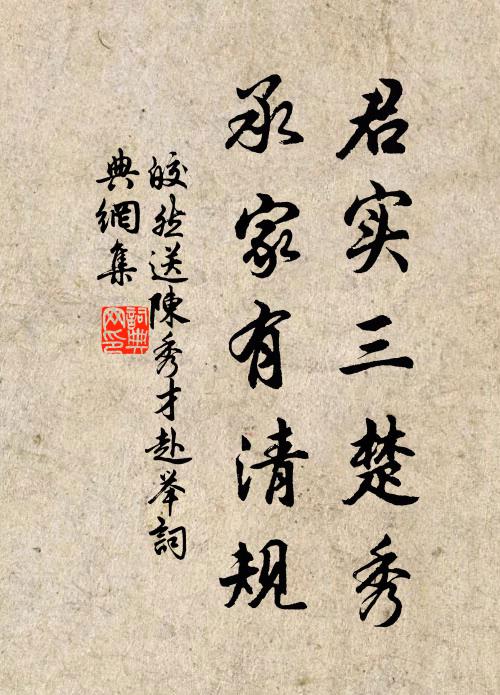 君实三楚秀
承家有清规
皎然送陳秀才赴举詞
典網集
詞典
网印